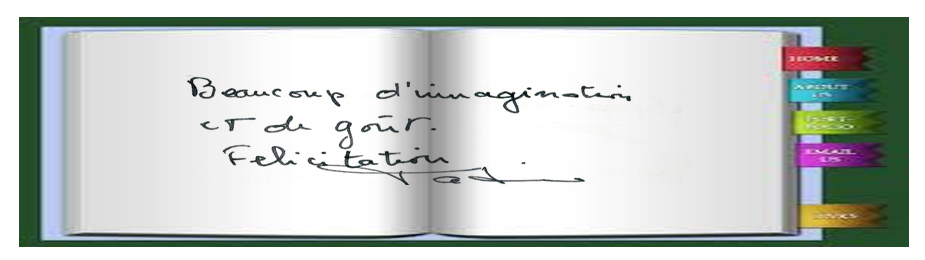 Beaucoup d'imagination
et de goût.
Felicitation
HOME
ABOUT
US
PORT
FOLIO
EMAIL
US
LINKS